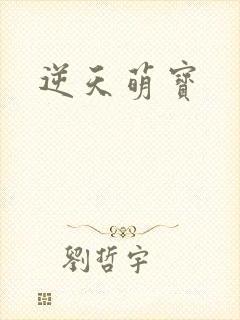 逆天萌寶
劉哲宇